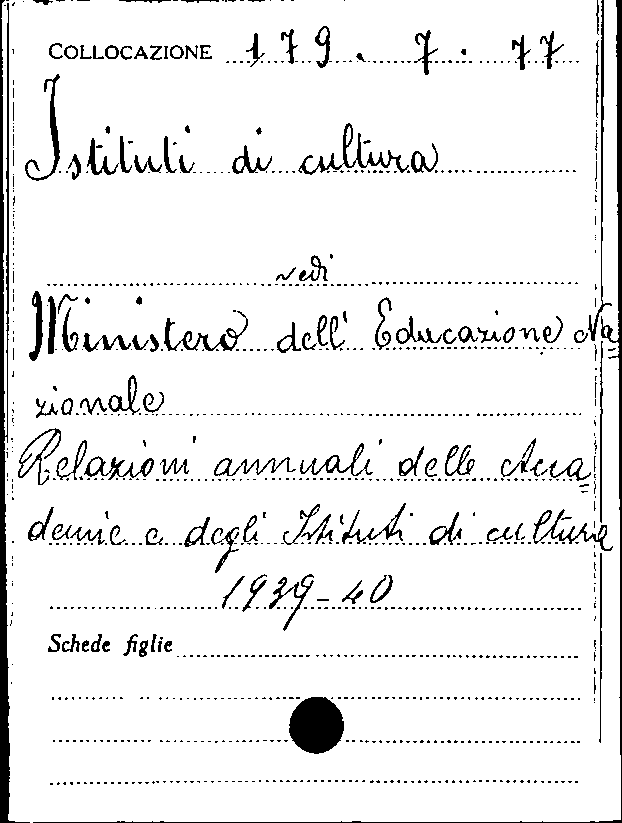 COLLOCAZIONE 179. 7. 77
Istituti di cultura
vedi
Ministero dell' Educazione Na=
zionale
Relazioni annuali delle Acca=
demie e degli Istituti di cultura
1939-40
Schede figlie